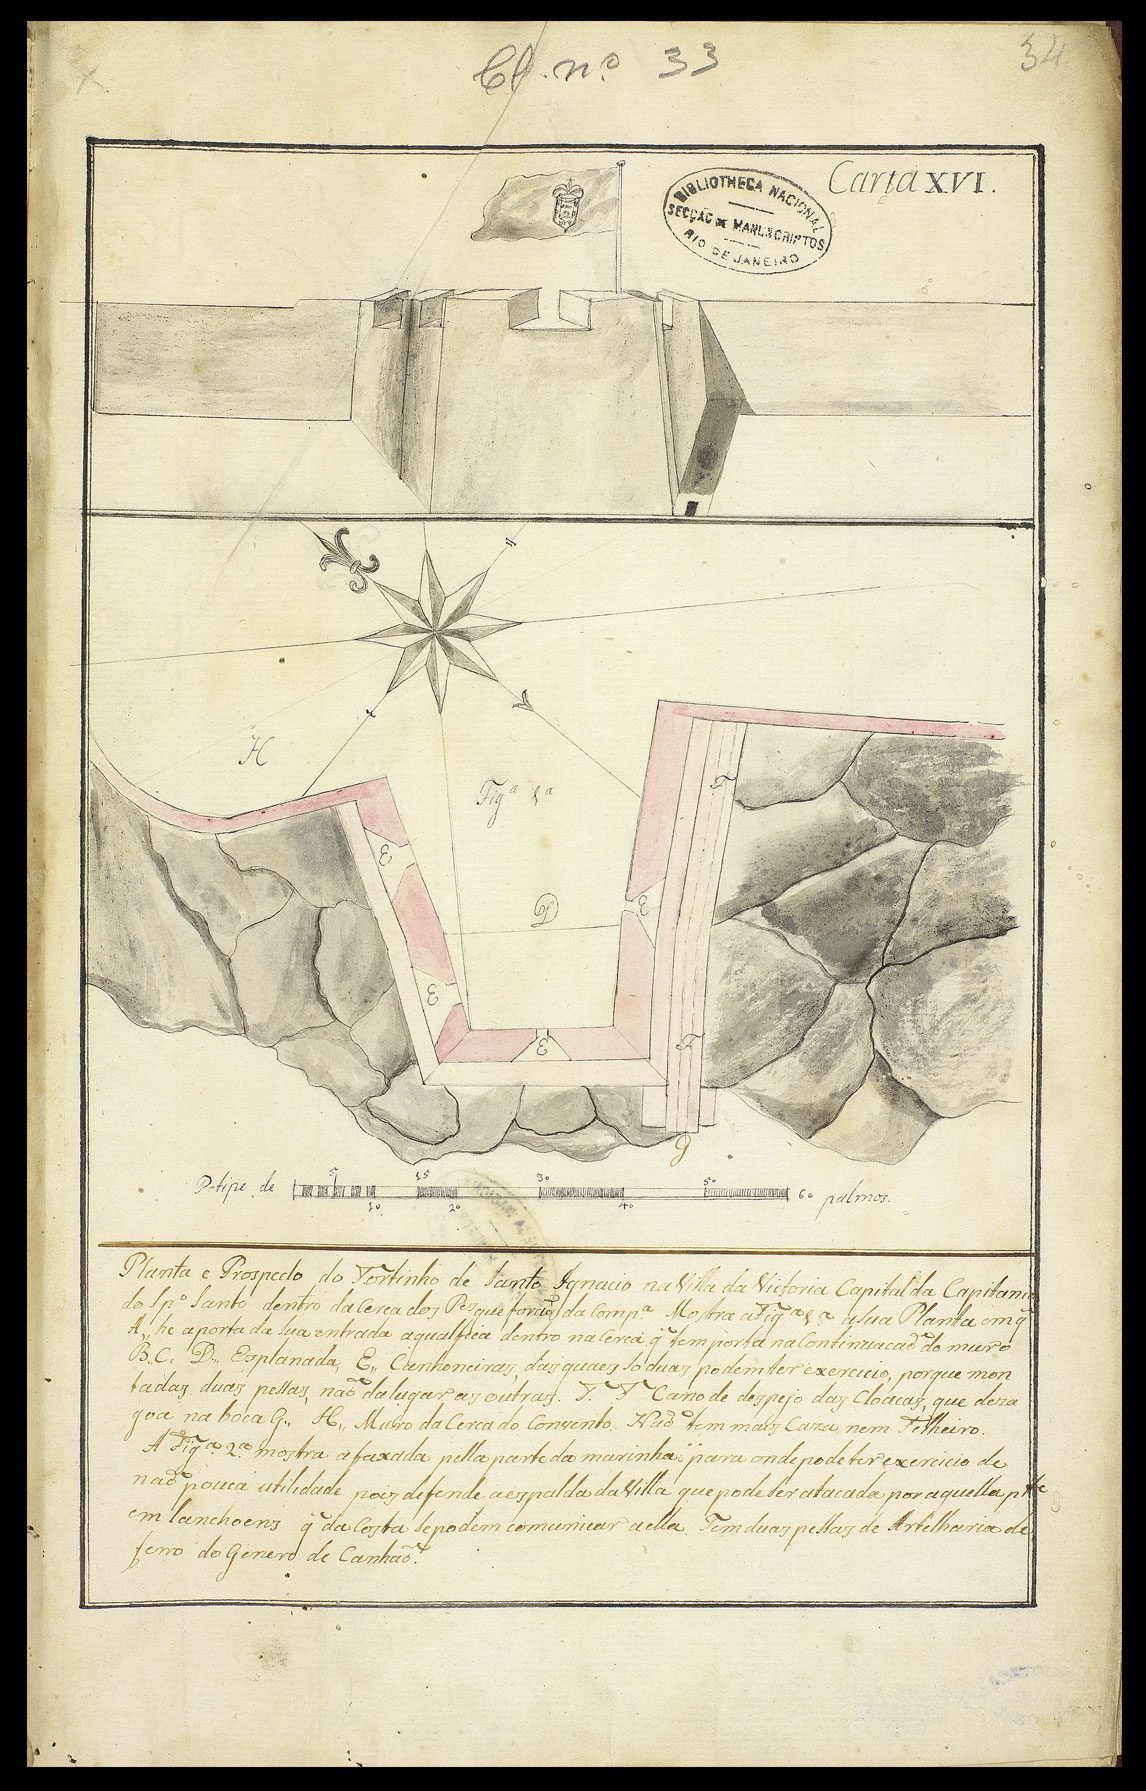 Ct. nº 33
34
Carta XVI.
BIBLIOTHECA NACIONAL
SECÇÃO DE MANUSCRIPTOS
RIO DE JANEIRO
H
Figª 1ª
E
F
D
E
E
E
F
G
Petipe de 5 10 15 20 30 40 50 60 palmos.
Planta e Prospecto do Fortinho de Santo Ignacio na Villa da Victoria Capital da Capitania
do Spº Santo dentro da Cerca dos Pes que forão da Compª. Mostra a Figª 1ª a sua Planta em q̃
A,, he a porta da sua entrada a qual fica dentro na Cerca, q̃ tem porta na Continuacaõ do muro
B,, C,, D,, Esplanada, E,, Canhoneiras, das quaes só duas podem ter exercicio, porque mon
tadas duas pessas, naõ da lugar as outras. F. F Cano de despejo das Cloacas, que deza
goa na boca G,, H,, Muro da Cerca do Convento. Naõ tem mais Caza, nem Telheiro.
A Figª 2ª mostra a faxada pella parte da marinha para onde pode ter exercicio de
naõ pouca utilidade pois defende a espalda da Villa que pode ser atacada por aquella pte
em lanchoens q̃ da Costa se podem comunicar a ella. Tem duas pessas de Artelharia de
ferro do Genero de Canhaõ.